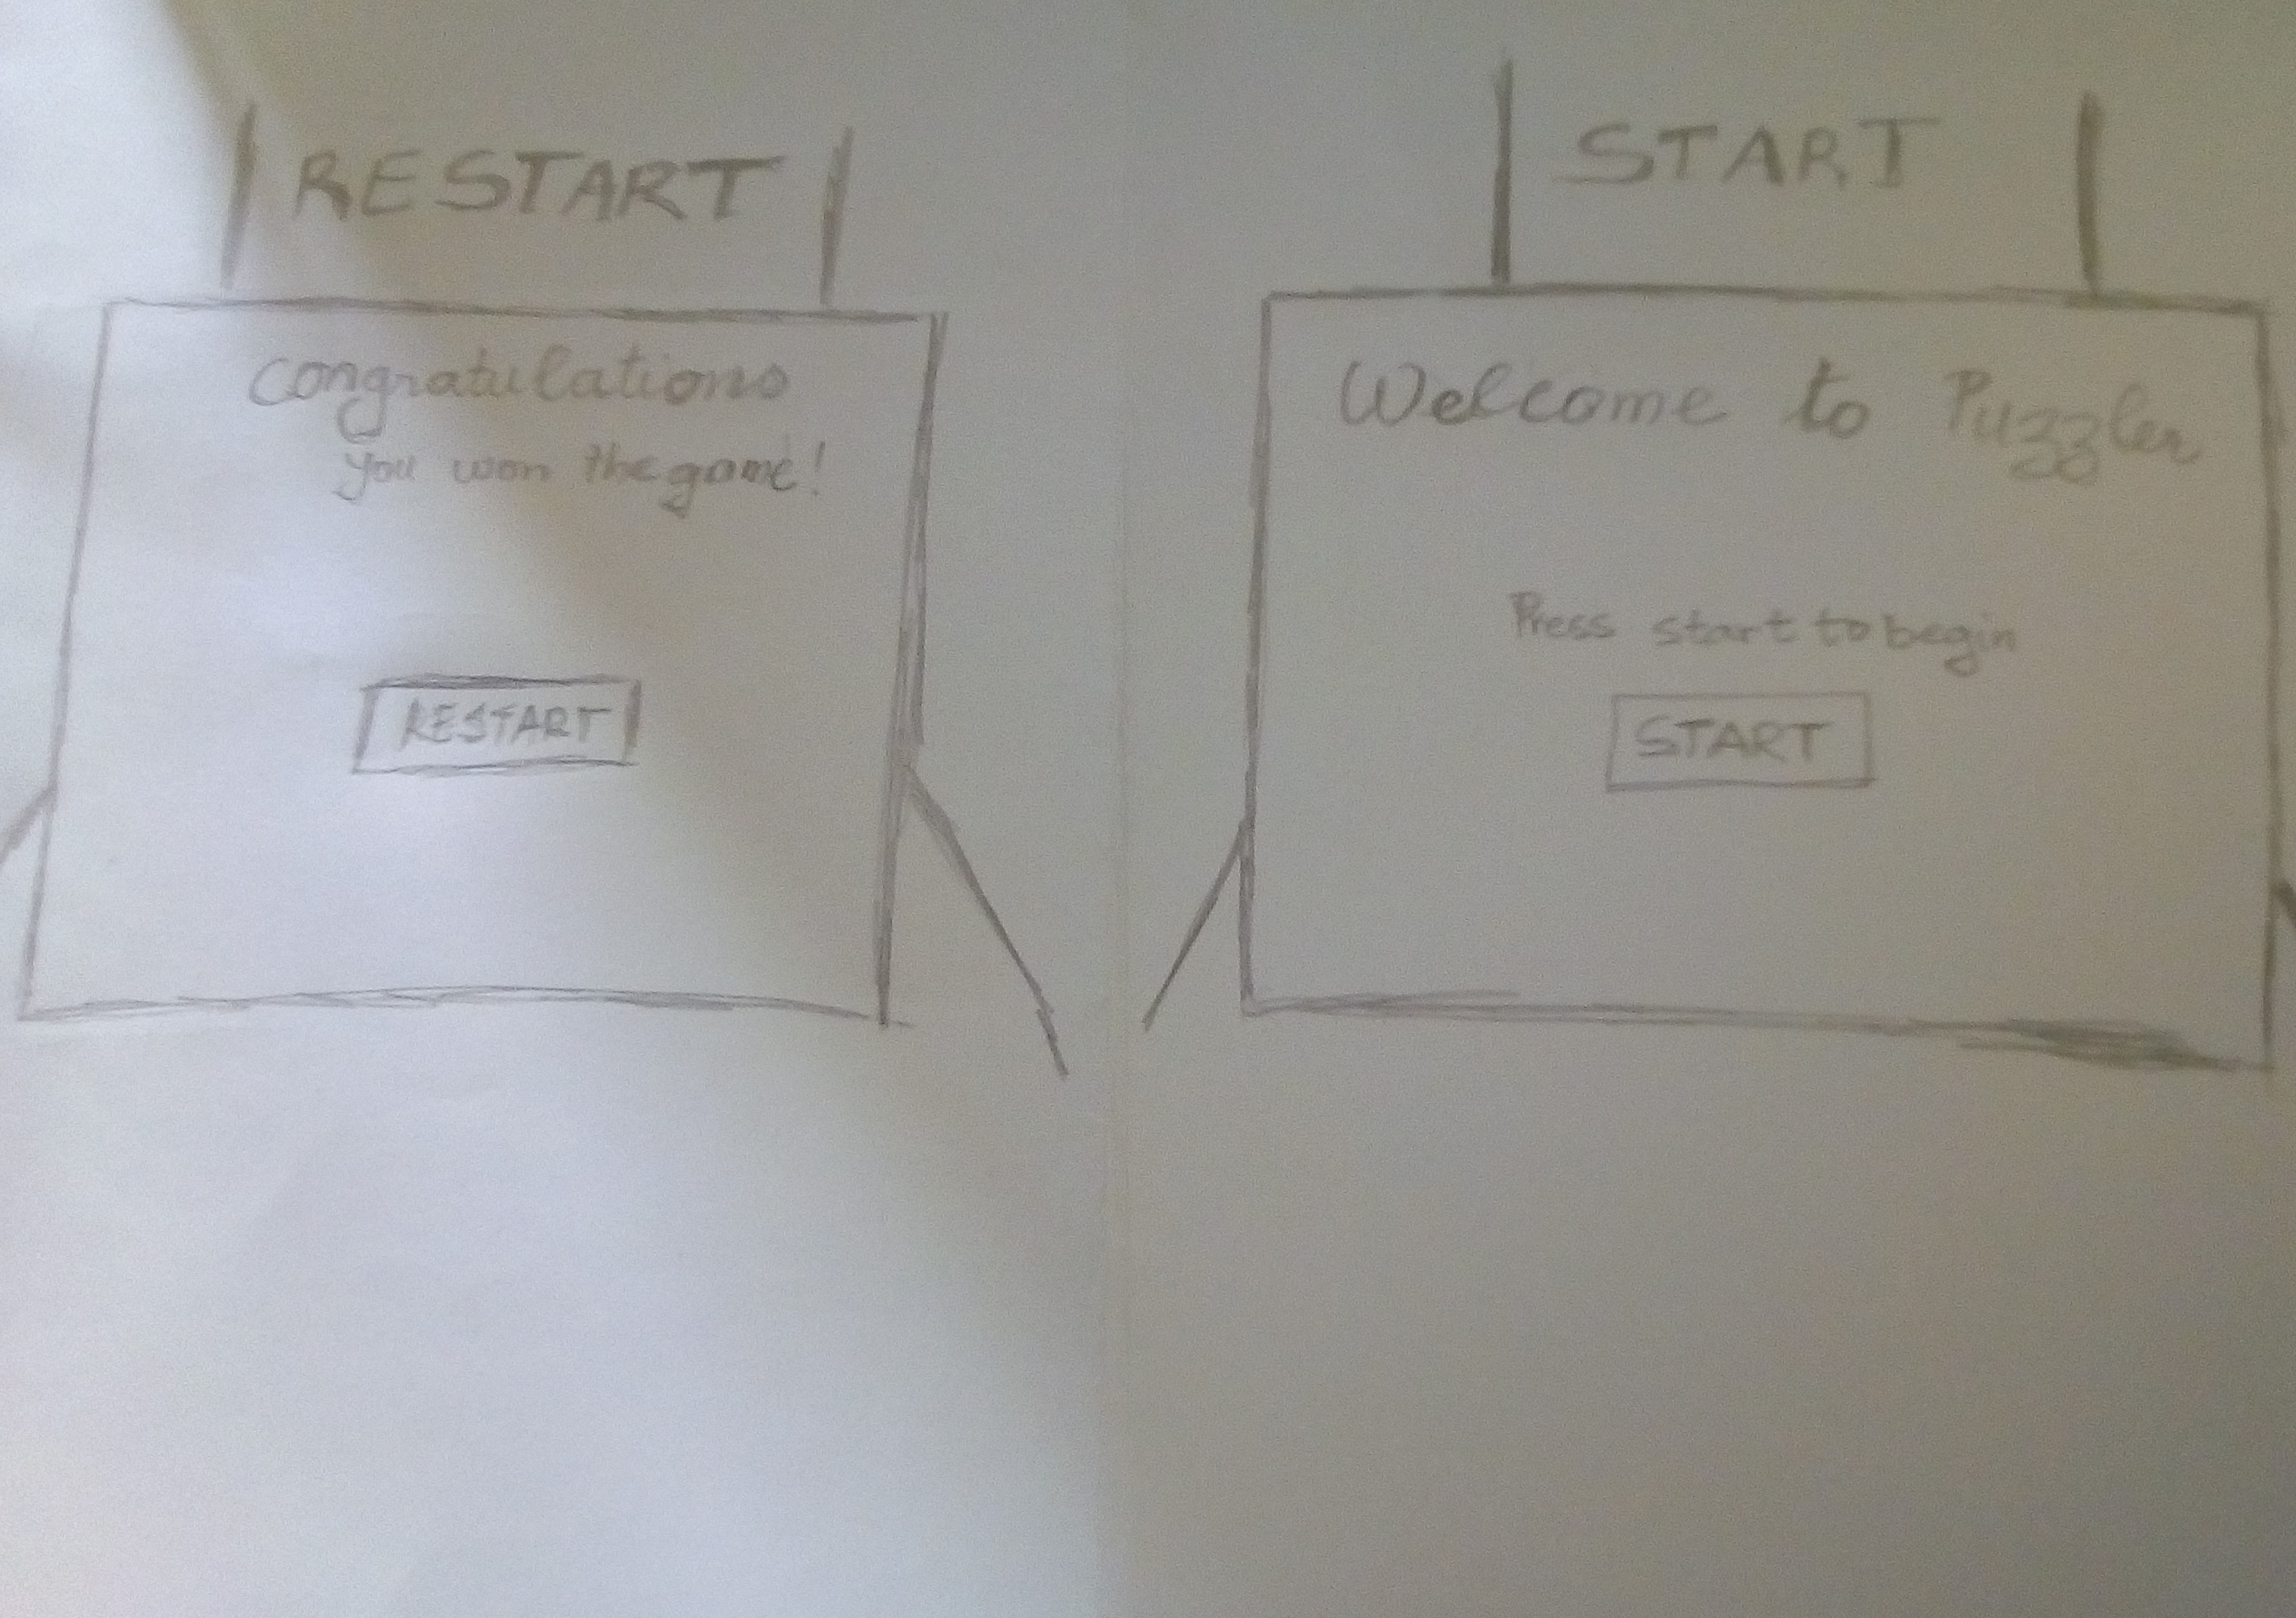 RESTART
Congratulations
you won the game!
RESTART
START
Welcome to Puzzler
Press start to begin
START